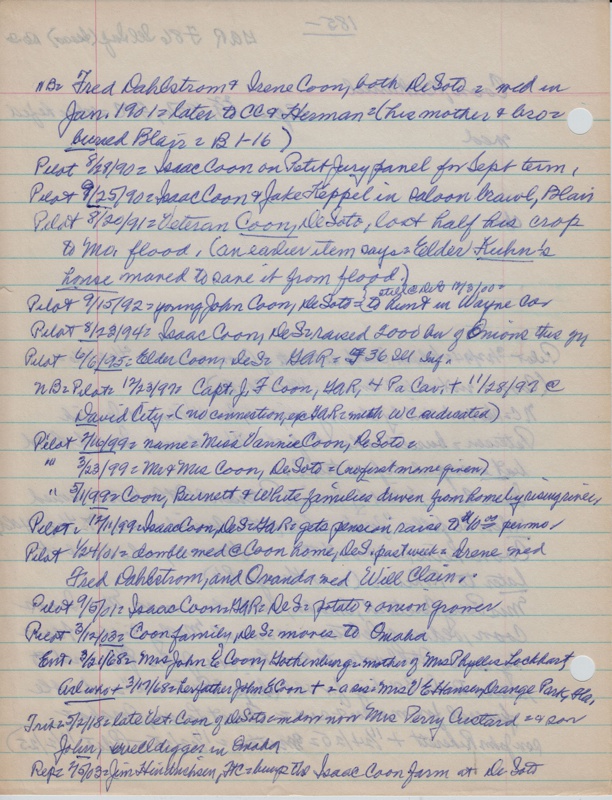 185-
NB= Fred Dahlstrom & Irene Coon, both DeSoto = med in
Jan. 1901 = later to CC & Herman = (his mother & bro =
buried Blair = B 1-16)
Pilot 8/28/90 = Isaac Coon on Petit Jury panel for Sept term,
Pilot 9/25/90 = Isaac Coon & Jake Keppel in saloon brawl, Blair
Pilot 8/20/91 = Veteran Coon, DeSoto, lost half his crop
to Mo. flood. (an earlier item says = Elder Kuhn's
house moved to save it from flood)
Pilot 9/15/92 = young John Coon, DeSoto = to hunt in Wayne co
still @ DeS 12/3/00 =
Pilot 8/23/94 = Isaac Coon, DeS = raised 2000 bu of Onions this yr
Pilot 6/6/95 = Elder Coon, DeS = GAR = 36 Ill Inf.
NB = Pilot = 12/23/97 = Capt J. F Coon, GAR, 4 Pa Cav. + 11/28/97 @
David City + (no connection, exc GAR = with WC)
Pilot /99 = name = Miss Vannie Coon, DeSoto =
"" 3/23/99 = Mr & Mrs Coon, DeSoto = (no first name given)
" 5/11/99 = Coon, Burnett & White families driven from home by rising river,
Pilot. 12/ /99 = Isaac Coon, DeS = GAR = gets pension raise to $10 00 per mo,
Pilot 1/24/01 = double med @ Coon home, DeS, past week = Irene med
Fred Dahlstrom, and Ovanda med Will Clain..
Pilot 9/5/01 = Isaac Coon = GAR = DeS = potato & onion grower
Pilot 3/12/03 = Coon family, DeS = moves to Omaha
Ent. 3/21/68 = Mrs John E Coon, Gothenburg = mother of Mrs Phyllis Lockhart
Arl who + 3/17/68 = her father John E Coon + = a sis = Mrs V E Hansen, Orange Park, Fla.
Trib = 5/2/18 = late Vet. Coon of DeSoto = now Mrs Perry Custard = & son
John, well digger in Omaha
Rep = 2/5/03 = Jim Hinrichsen, = buys the Isaac Coon farm at DeSoto